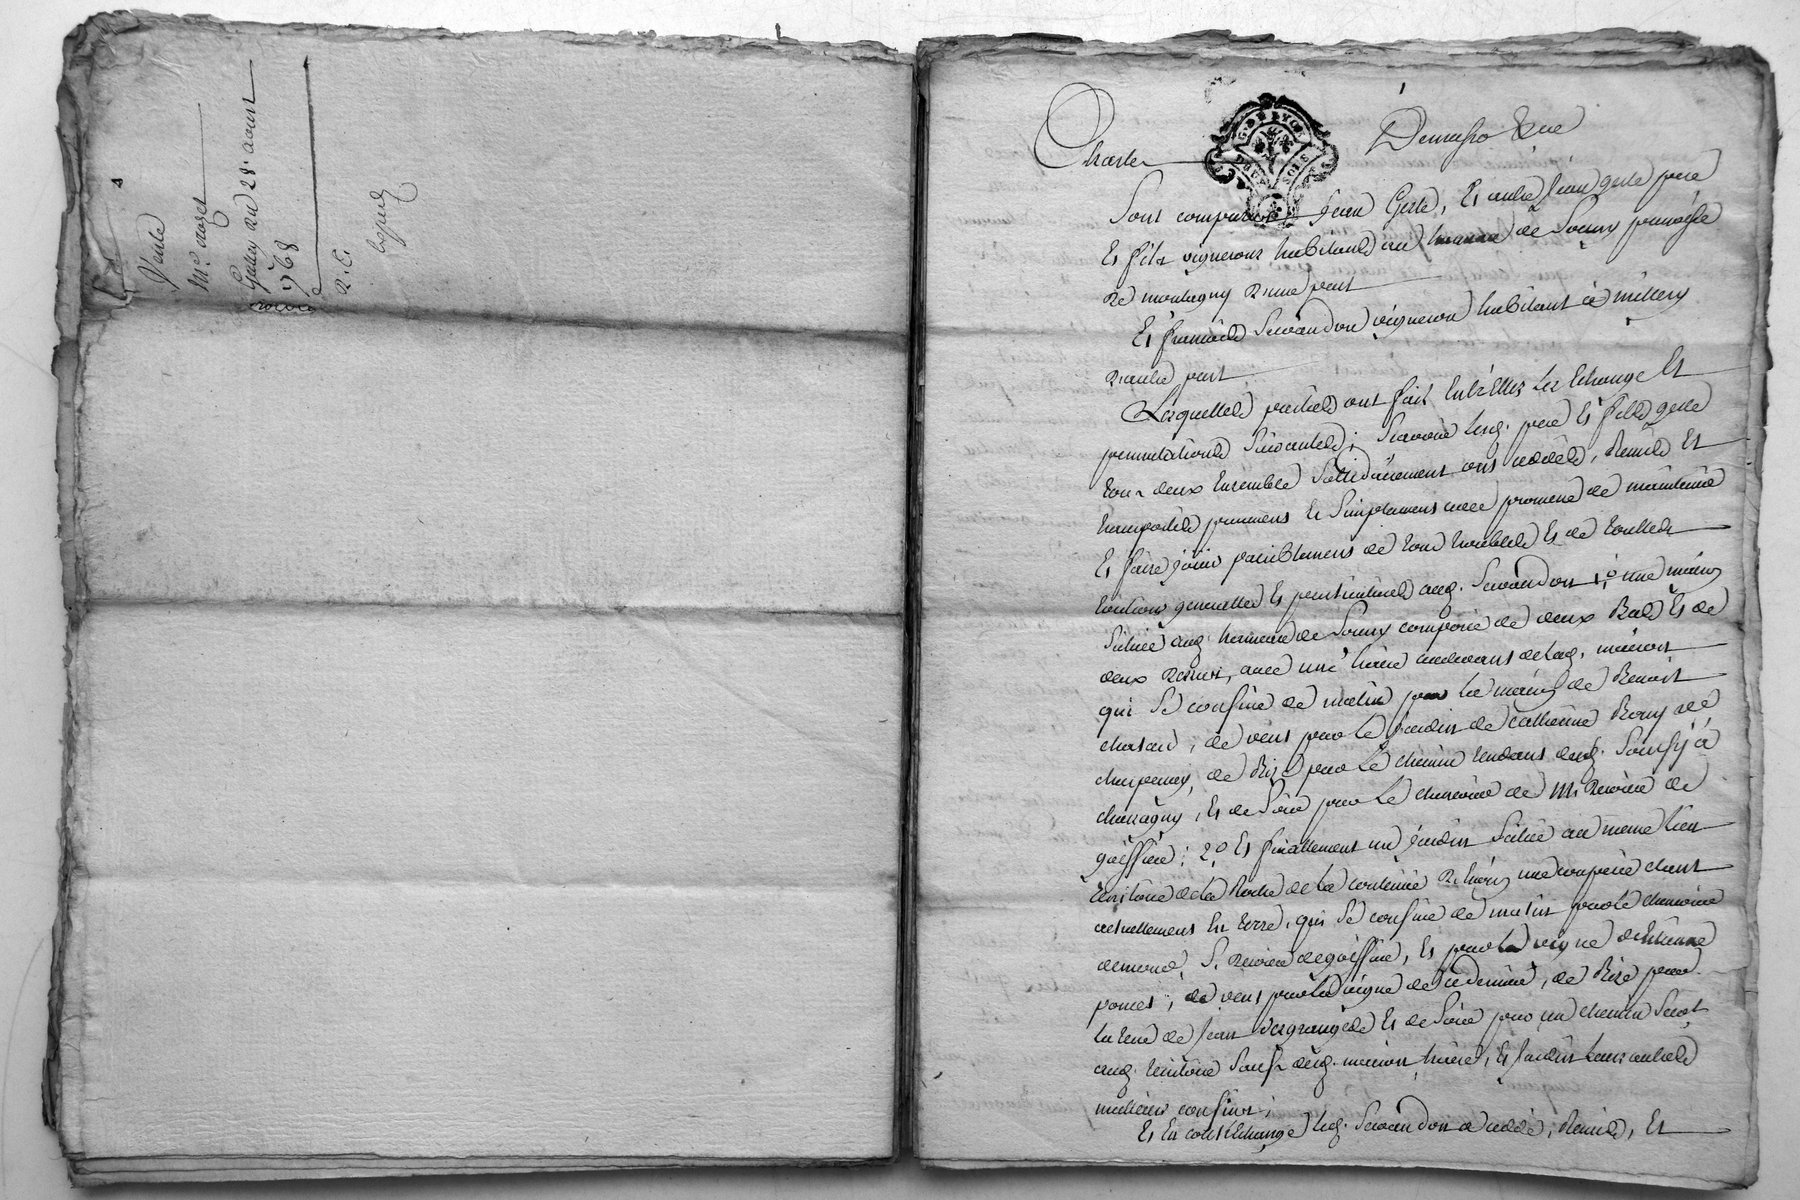 Vente
Me croset
28 aoust
1768
Charles
G. DE LYON
DEUX SOLS
Sont comparus Jean Geste, Et autre Jean geste pere
Et fils vignerons habitants au hameau de Soucy parroisse
de montagny d'une part
Et francois Savandon vigneron habitant à millery
d'autre part
Lesquelles parties ont fait Entr'Elles Les Echange Et
permutations suivantes; Scavoir lesd. pere Et fils geste
tous deux Ensemble solidairement ont cédés, Remis Et
transportés purement Et simplement avec promesse de maintenir
Et faire jouir paisiblement de tous troubles Et de touttes
Evictions generalles Et particulieres aud. Savandon 1.° une maison
Située aud. hameau de Soucy composée de deux Bas Et de
deux dessus, avec une haire audevant de lad. maison
qui se confine de matin par la maison de Benoit
chasard, de vent par le jardin de catherine Rony de
charpenay, de Bize par le chemin tendant dud. Soucy à
chassagny, Et de soir par le chenevier de Mr Riviere de
goiffieu; 2.° Et finallement un jardin Situé au meme lieu
territoire de la Roche de la contenue d'Environ une couperée Etant
actuellement En terre, qui se confine de matin par le chenevier
demond. S. Riviere de goiffieu, Et par la vigne d'Etienne
poncet; de vent par la vigne de ce dernier, de Bize par
la terre de Jean desgranges Et de soir par un chemin Servant
aud. territoire sauf dud. maison haire, Et jardin leurs autres
meilleurs confins;
Et En contr'Echange led. Savandon a cédé, Remis, Et